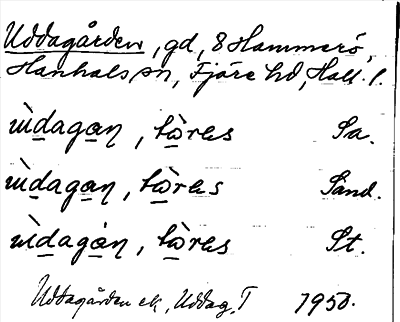 Uddagården, gd, 8 Hammerö,
Hanhals sn, Fjäre hd, Hall. l.
ùdagan, tòres Sa.
ùdagan, tòres Sand.
ùdagan, tòres St.
Uddagården ek, Uddag. T 1950.